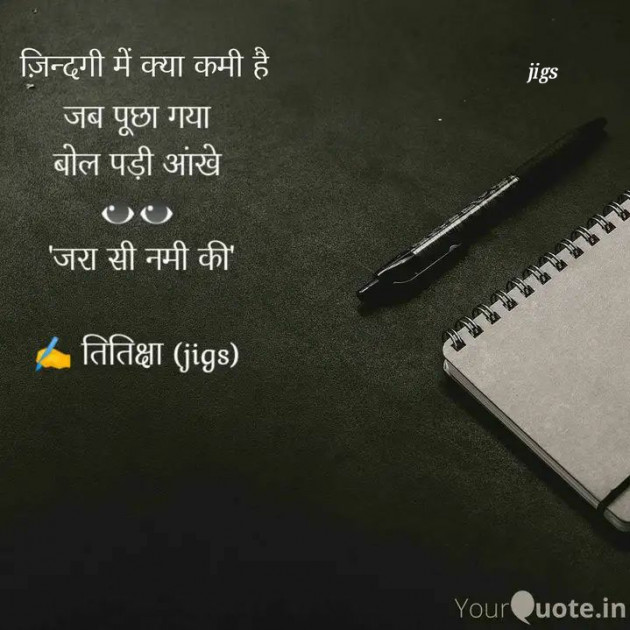 ज़िन्दगी में क्या कमी है
jigs
जब पूछा गया
बोल पड़ी आंखे
👁️👁️
'जरा सी नमी की'
✍️ तितिक्षा (jigs)
YourQuote.in